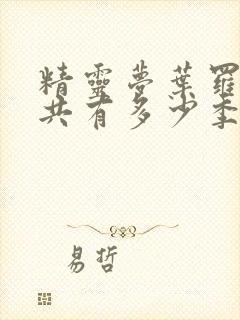 精靈夢葉羅
共有多少季
易哲